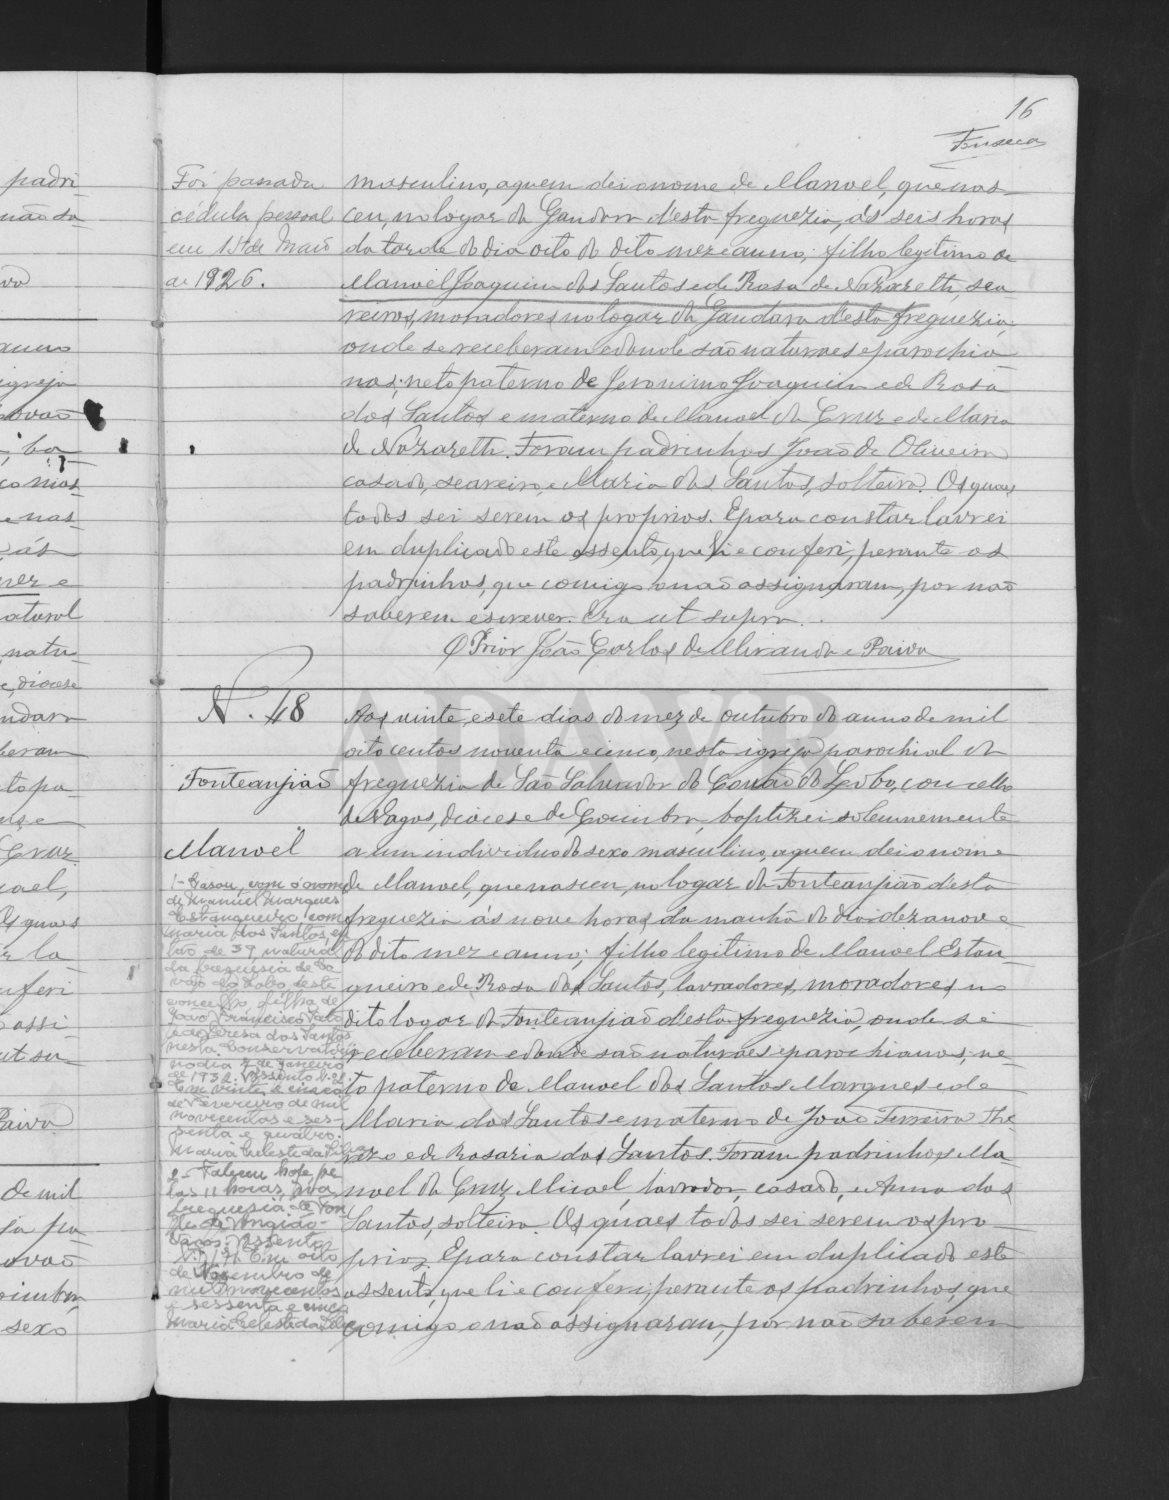 16
Fonseca
Foi passada
cédula pessoal
em 15 de Maio
de 1926.
masculino, a quem dei o nome de Manoel, que nas-
ceu, no logar da Gandara d'esta freguezia, ás seis horas
da tarde do dia oito do dito mez e anno; filho legitimo de
Manoel Joaquim dos Santos e de Rosa de Nazareth, sea-
reiros, moradores no logar da Gandara d'esta freguezia,
onde se receberam e donde são naturaes e parochia-
nos; neto paterno de Jeronimo Joaquim e de Rosa
dos Santos e materno de Manoel da Cruz e de Maria
de Nazareth. Foram padrinhos João de Oliveira
casado, seareiro, e Maria dos Santos, solteira. Os quaes
todos sei serem os proprios. E para constar lavrei
em duplicado este assento, que li e conferi, perante os
padrinhos, que comigo o não assignaram, por não
saberem escrever. Era ut supra.
O Prior João Carlos de Miranda e Paiva
N. 48
Fonteanjião
Manoel
Aos vinte, e sete dias do mez de outubro do anno de mil
oito centos noventa e cinco, nesta igreja parochial da
freguezia de São Salvador do Covão do Lobo, concelho
de Vagos, diocese de Coimbra, baptizei solemnemente
a um individuo do sexo masculino, a quem dei o nome
de Manoel, que nasceu, no logar da Fonteanjião d'esta
freguezia ás nove horas da manhã do dia dezanove
do dito mez e anno; filho legitimo de Manoel Estan-
queiro e de Rosa dos Santos, lavradores, moradores no
dito logar da Fonteanjião d'esta freguezia, onde se
receberam e donde são naturaes e parochianos; ne-
to paterno de Manoel dos Santos Marques e de
Maria dos Santos e materno de João Ferreira The-
rezo e de Rosaria dos Santos. Foram padrinhos Ma-
noel da Cruz Micael, lavrador, casado, e Anna dos
Santos, solteira. Os quaes todos sei serem os pro-
prios. E para constar lavrei em duplicado este
assento, que li e conferi perante os padrinhos, que
comigo o não assignaram, por não saberem
1- Casou, com o nome
de Manuel Marques
Estanqueiro, com
Maria dos Santos, en-
tão de 39, natural
da freguesia de Co-
vão do Lobo, deste
concelho, filha de
João Francisco
e de Teresa dos Santos
nesta Conservatória
no dia 7 de Janeiro
de 1932. Assento n.º 2.
Em vinte e cinco
de Fevereiro de mil
novecentos e ses-
senta e quatro.
Maria Celeste da Silva
2- Faleceu hoje pe-
las 11 horas, na
freguesia de Fon-
te de Angião-
Vagos. Assento
Em oito
de Novembro de
mil novecentos
e sessenta e cinco
Maria Celeste da Silva
padri-
não sa-
igreja
Covão
nas-
ás
mez e
natural
natu-
diocese
Gandara
Cruz
Os quaes
assi-
Paiva
de mil
Covão
Coimbra,
sexo
ADAVR